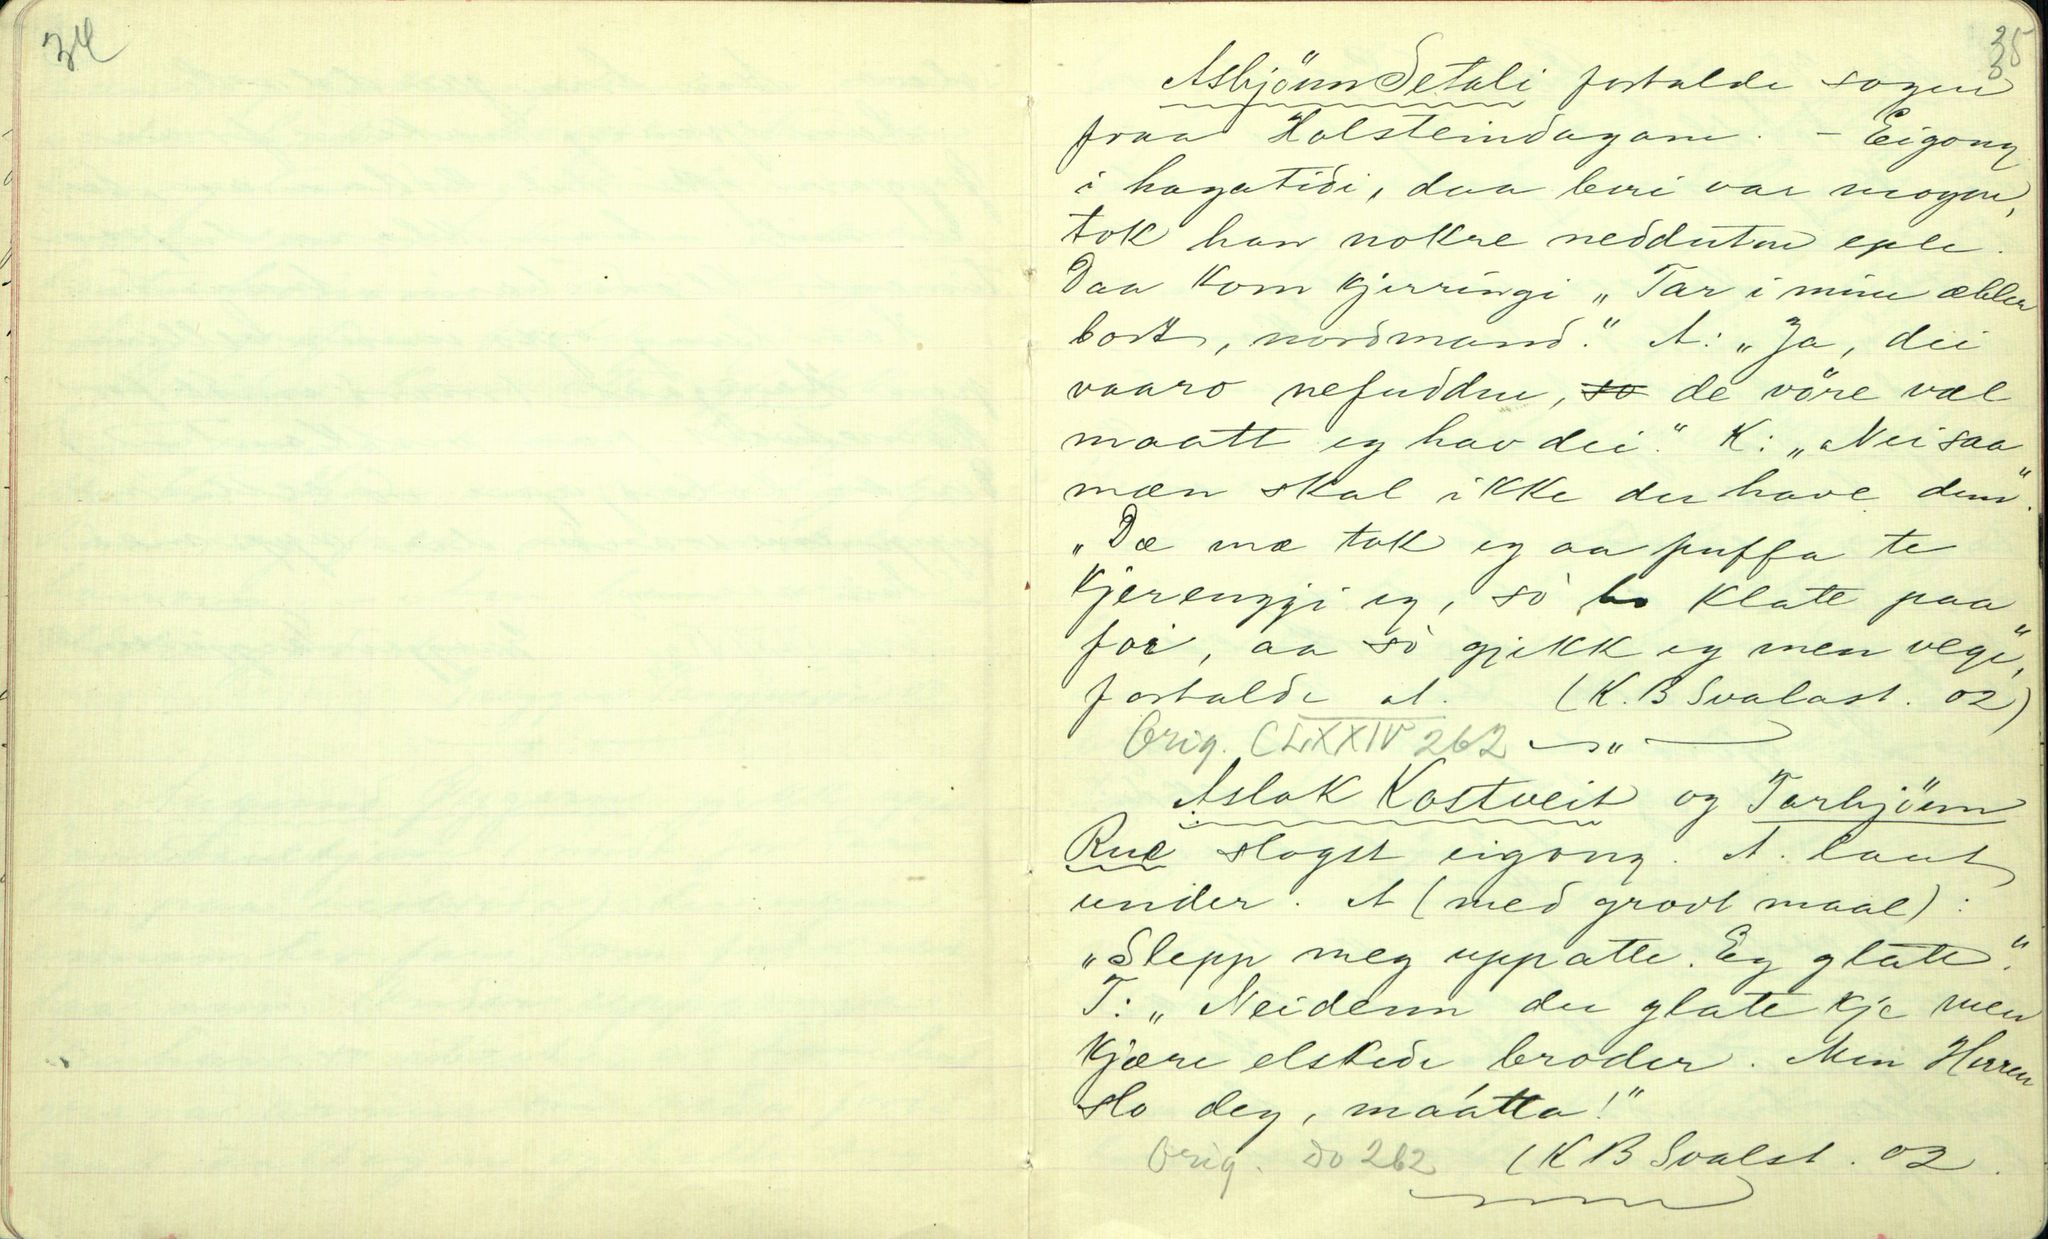 34
35
Asbjönn Setali fortalde sogur
fraa Holsteindagane. – Eigong
i hagatidi, daa beri var mogne,
tok han nokre neddutne eple.
Daa kom kjerringi „Tar i mine æbler
bort, nordmand." A: „Ja, dei
vaaro nefuddne, so de vöre væl
maatt eg hav dei." K: „Nei saa
mæn skal ikke du have dem".
„Dæ mæ tok eg aa puffa te
kjerenggji eg, sò ho klate paa
foi, aa sò gjekk eg men vegi",
fortalde A. (K. B Svalast. 02)
Orig. CLXXIV 262 — „ —
Aslak Kostveit og Tarbjönn
Rue slogst eigong. A. laut
under. A (med grovt maal):
„Slepp meg upp atte. Eg glate".
T: „Neidenn du glate kje men
kjære elskede broder. Men Herren
slo deg, maátta!"
Orig. Do 262 (K B Svalst. 02.